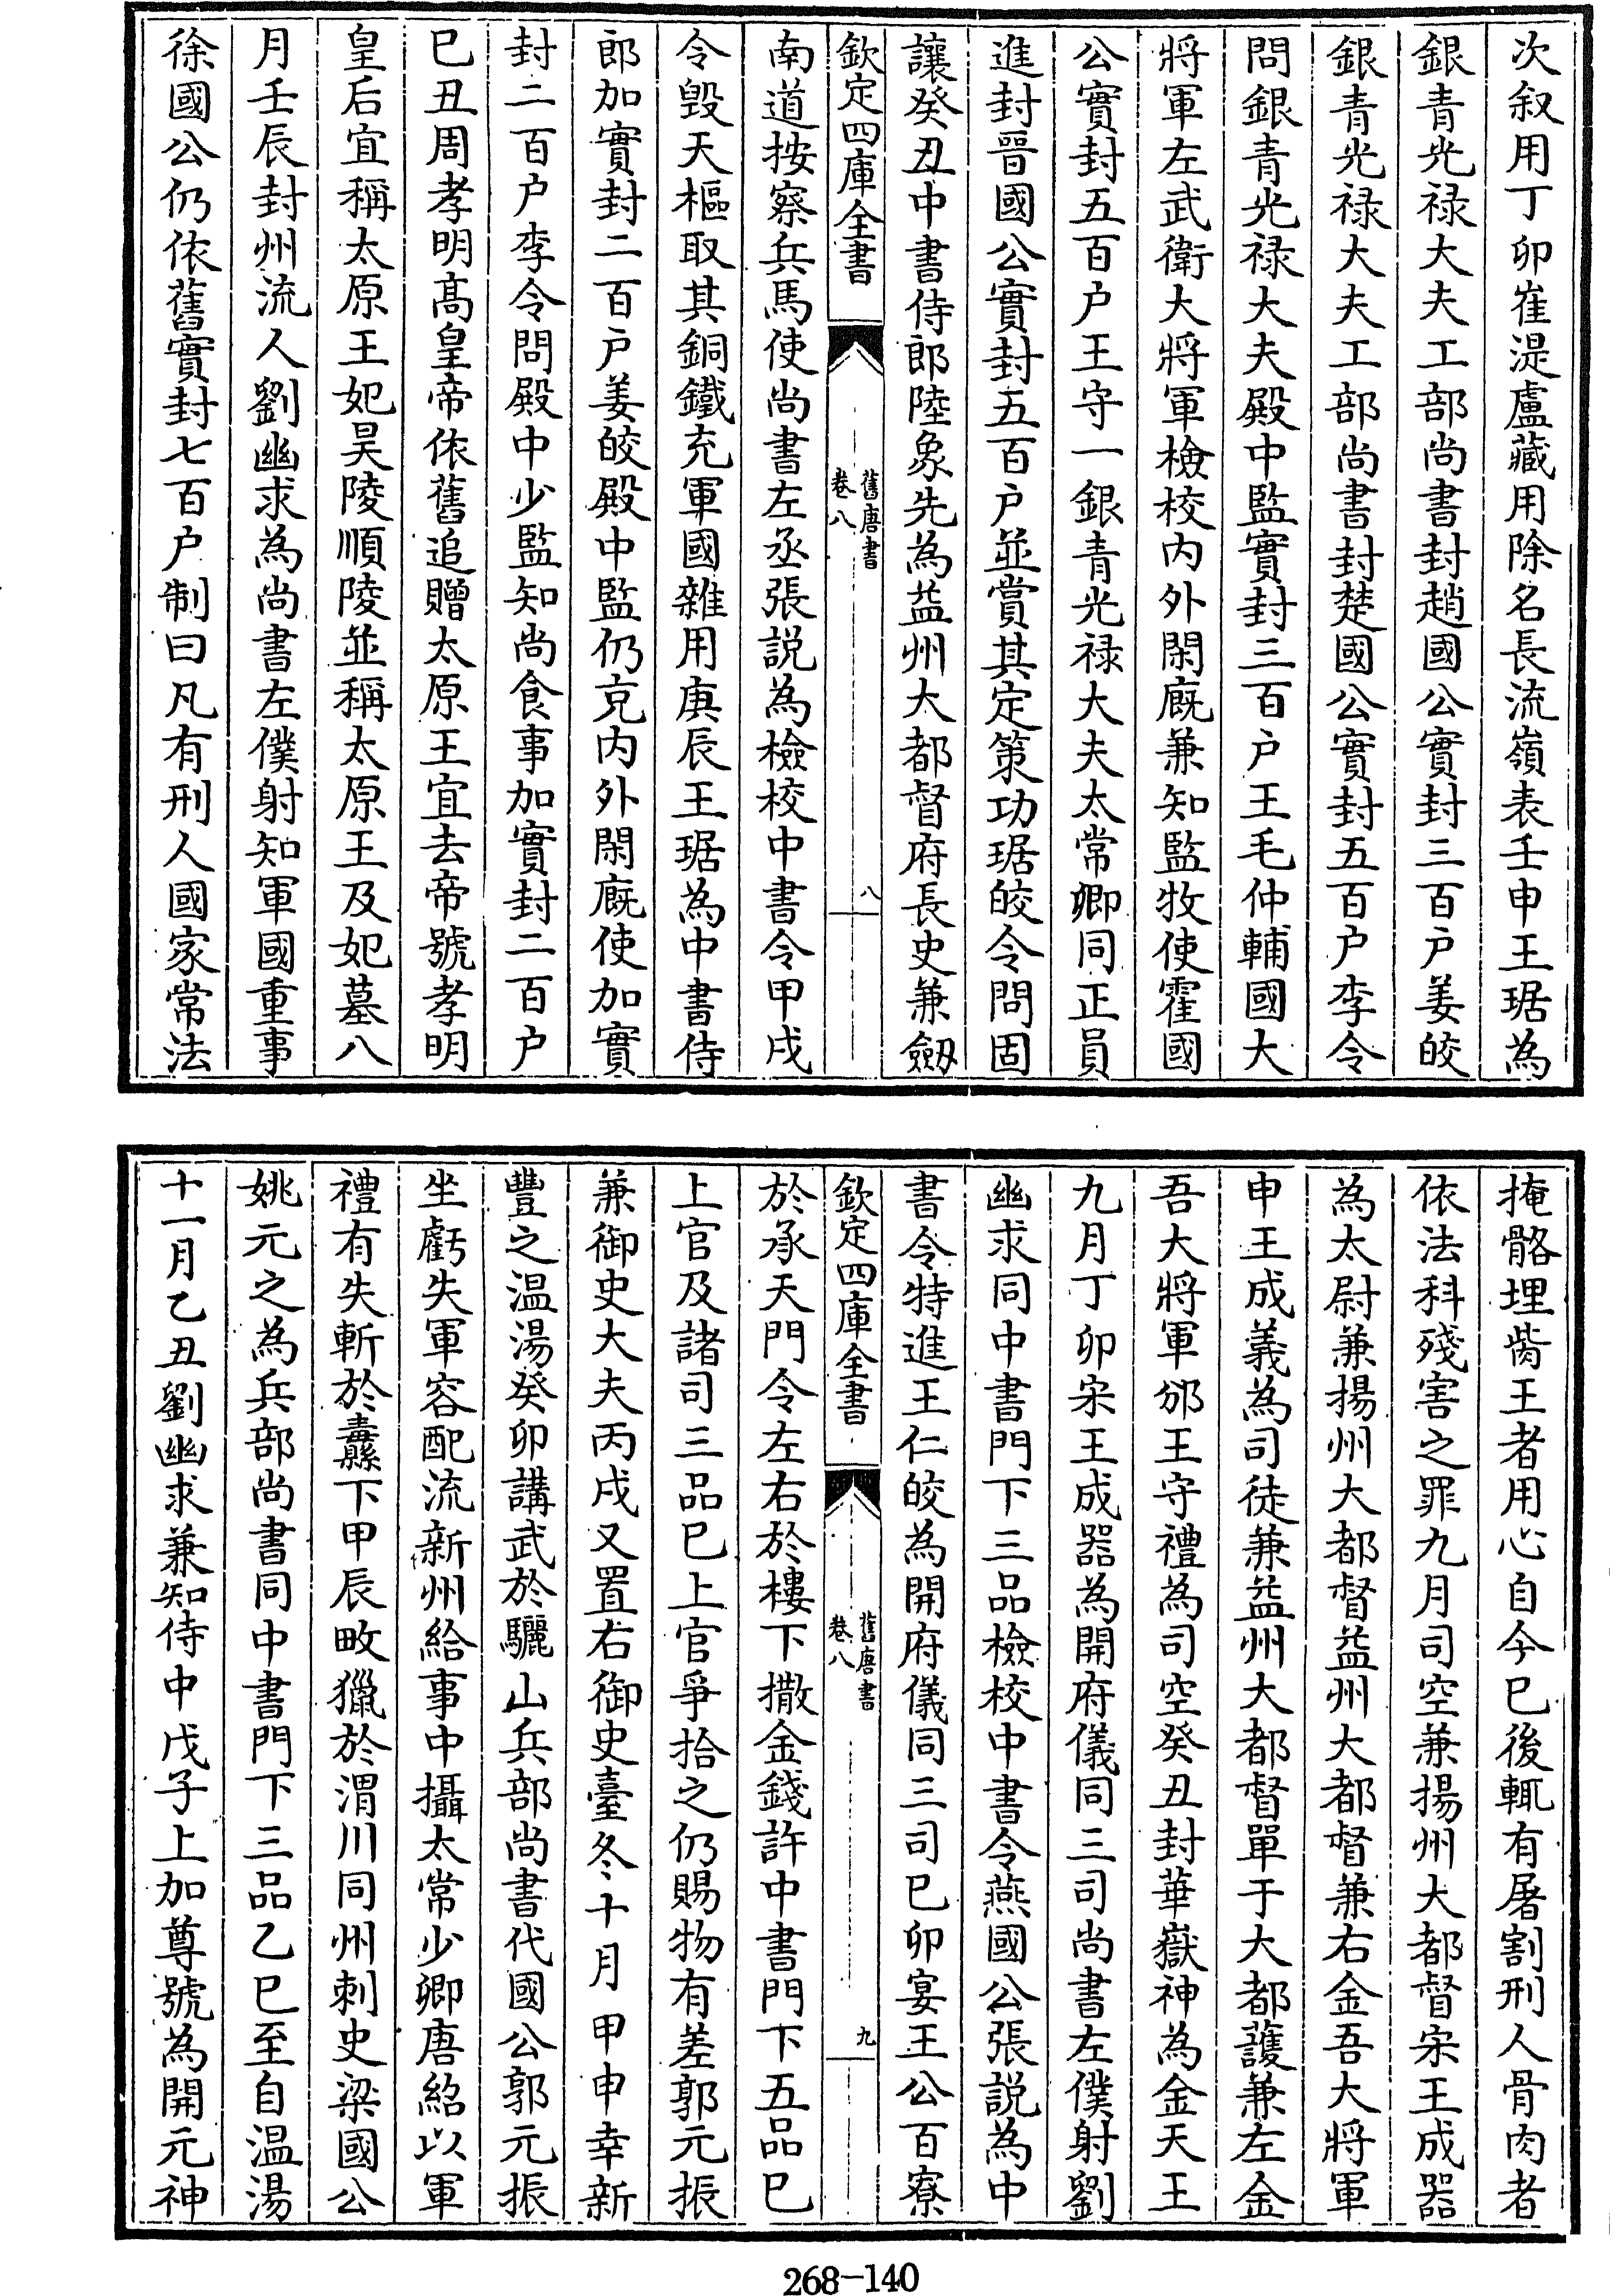 次叙用丁卯崔湜盧藏用除名長流嶺表壬申王琚為
銀青光禄大夫工部尚書封趙國公實封三百户姜皎
銀青光禄大夫工部尚書封楚國公實封五百户李令
問銀青光禄大夫殿中監實封三百户王毛仲輔國大
將軍左武衛大將軍檢校内外閑廐兼知監牧使霍國
公實封五百户王守一銀青光禄大夫太常卿同正員
進封晉國公實封五百户並賞其定策功琚皎令問固
讓癸丑中書侍郎陸象先為益州大都督府長史兼劔
欽定四庫全書
舊唐書
卷八
八
南道按察兵馬使尚書左丞張説為檢校中書令甲戌
令毁天樞取其銅鐵充軍國雜用庚辰王琚為中書侍
郎加實封二百户姜皎殿中監仍充内外閑廐使加實
封二百户李令問殿中少監知尚食事加實封二百户
巳丑周孝明髙皇帝依舊追贈太原王宜去帝號孝明
皇后宜稱太原王妃昊陵順陵並稱太原王及妃墓八
月壬辰封州流人劉幽求為尚書左僕射知軍國重事
徐國公仍依舊實封七百户制曰凡有刑人國家常法
掩骼埋胔王者用心自今巳後輒有屠割刑人骨肉者
依法科殘害之罪九月司空兼揚州大都督宋王成器
為太尉兼揚州大都督益州大都督兼右金吾大將軍
申王成義為司徒兼益州大都督單于大都護兼左金
吾大將軍邠王守禮為司空癸丑封華嶽神為金天王
九月丁卯宋王成器為開府儀同三司尚書左僕射劉
幽求同中書門下三品檢校中書令燕國公張説為中
書令特進王仁皎為開府儀同三司巳卯宴王公百寮
欽定四庫全書
舊唐書
卷八
九
於承天門令左右於樓下撒金錢許中書門下五品巳
上官及諸司三品巳上官爭拾之仍賜物有差郭元振
兼御史大夫丙戌又置右御史臺冬十月甲申幸新
豐之温湯癸卯講武於驪山兵部尚書代國公郭元振
坐虧失軍容配流新州給事中攝太常少卿唐紹以軍
禮有失斬於纛下甲辰畋獵於渭川同州刺史梁國公
姚元之為兵部尚書同中書門下三品乙巳至自温湯
十一月乙丑劉幽求兼知侍中戊子上加尊號為開元神
268-140